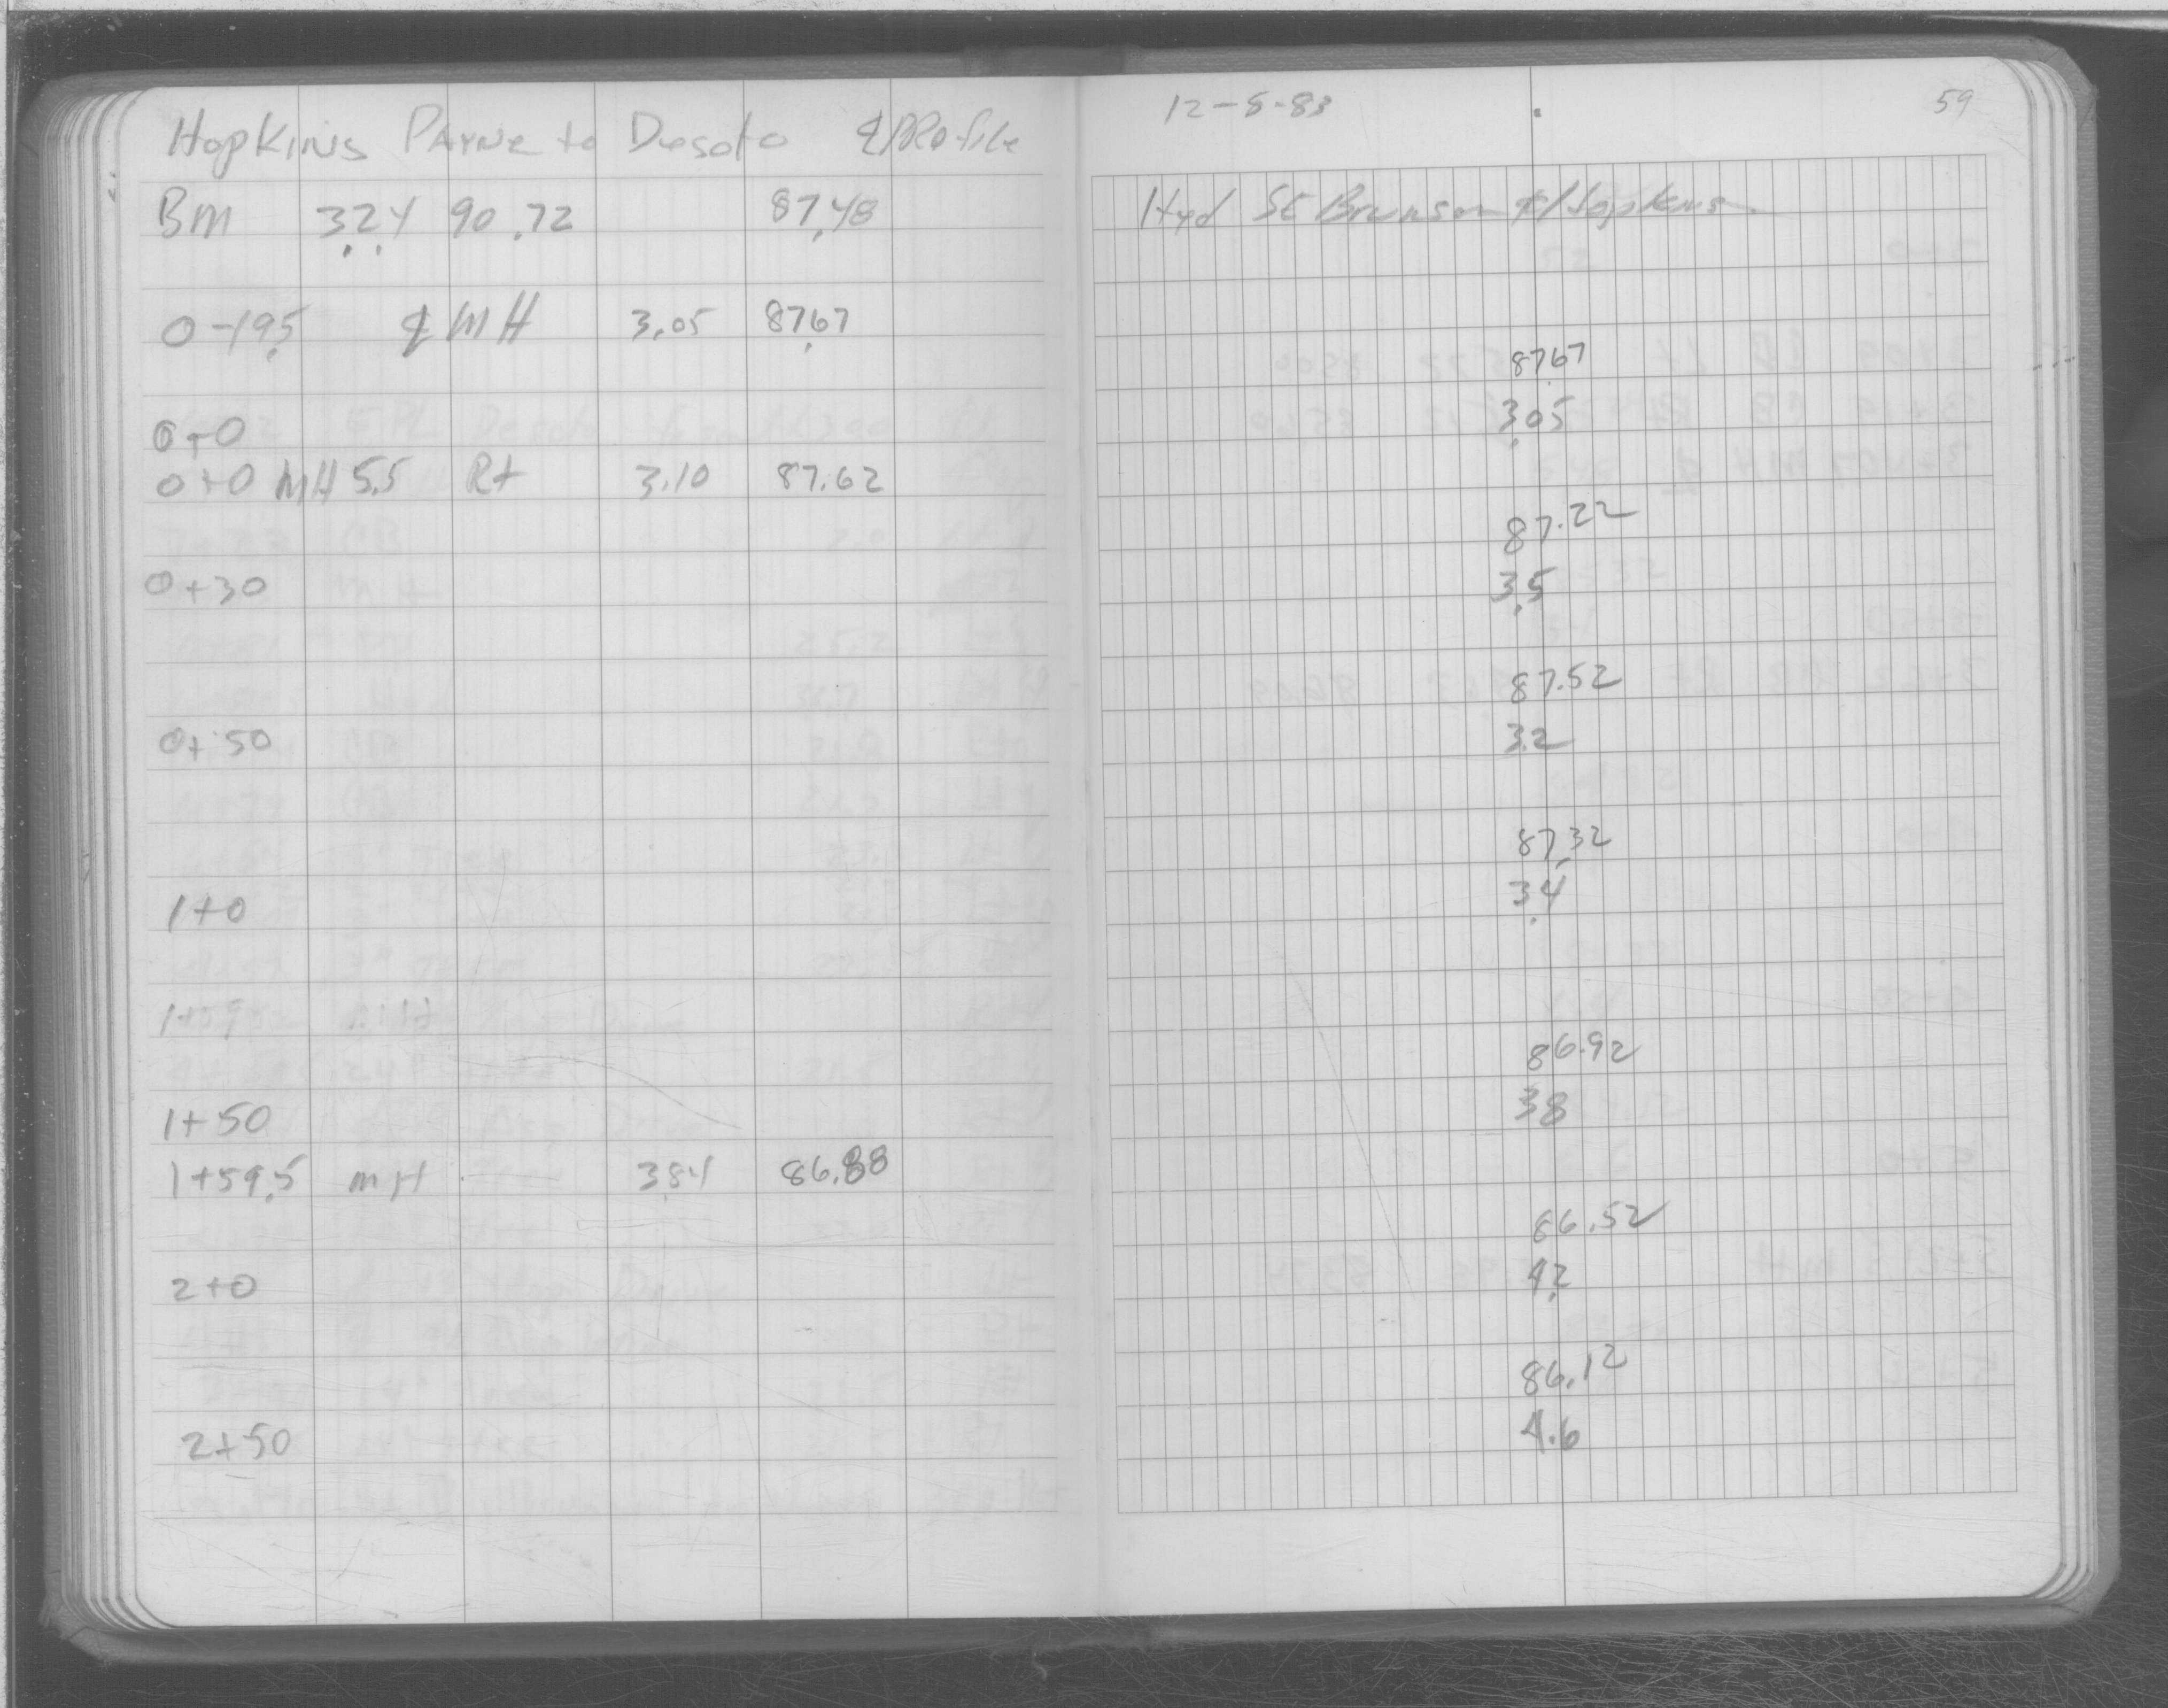 Hopkins Payne to Desoto ℄ Profile
BM 3.24 90.72 87.48
0-19.5 ℄ MH 3.05 87.67
0+0
0+0 MH 5.5 Rt 3.10 87.62
0+30
0+50
1+0
1+50
1+59.5 MH 3.84 86.88
2+0
2+50
12-8-83 59
Hyd SE Brunson & Hopkins
87.67
3.05
87.22
3.5
87.52
3.2
87.32
3.4
86.92
3.8
86.52
4.2
86.12
4.6